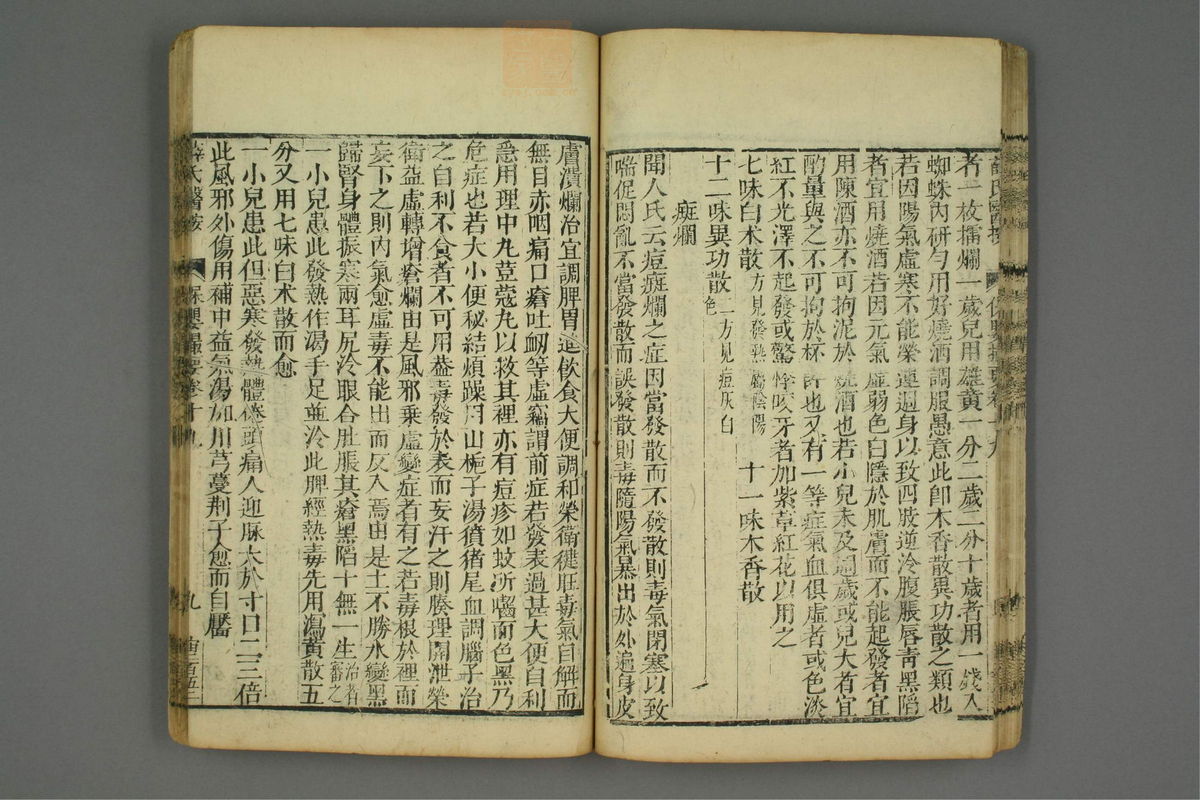 者一枚擂爛一歲兒用雄黃一分二歲二分十歲者用一錢入
蜘蛛內研勻用好燒酒調服愚意此卽木香散異功散之類也
若因陽氣虛寒不能榮運週身以致四肢逆冷腹脹唇靑黑陷
者宜用燒酒若因元氣虛弱色白隱於肌膚而不能起發者宜
用陳酒亦不可拘泥於燒酒也若小兒未及週歲或兒大者宜
酌量與之不可拘於杯許也又有一等症氣血俱虛者或色淡
紅不光澤不起發或驚悸咬牙者加紫草紅花以用之
七味白朮散方見發熱屬陰陽 十一味木香散
十二味異功散二方見痘灰白色
痘爛
聞人氏云痘癍爛之症因當發散而不發散則毒氣閉塞以致
喘促悶亂不當發散而誤發散則毒隨陽氣暴出於外遍身皮
膚潰爛治宜調脾胃進飮食大便調和榮衛健旺毒氣自解而
無目赤咽痛口瘡吐衂等虛竊謂前症若發表過甚大便自利
急用理中丸荳蔻丸以救其裡亦有痘疹如蚊所嚙而色黑乃
危症也若大小便秘結煩躁用山梔子湯豶猪尾血調腦子治
之自利不食者不可用葢毒發於表而妄汗之則腠理開泄榮
衛益虛轉增瘡爛由是風邪乘虛變症者有之若毒根於裡而
妄下之則內氣愈虛毒不能出而反入焉由是土不勝水變黑
歸腎身體振寒兩耳尻冷眼合肚脹其瘡黑陷十無一生治者審之
一小兒患此發熱作渴手足並冷此脾經熱毒先用瀉黃散五
分又用七味白朮散而愈
一小兒患此但惡寒發熱體倦頭痛人迎脉大於寸口二三倍
此風邪外傷用補中益氣湯加川芎蔓荆子愈而自靨
薛氏醫按 保嬰撮要卷十九 九